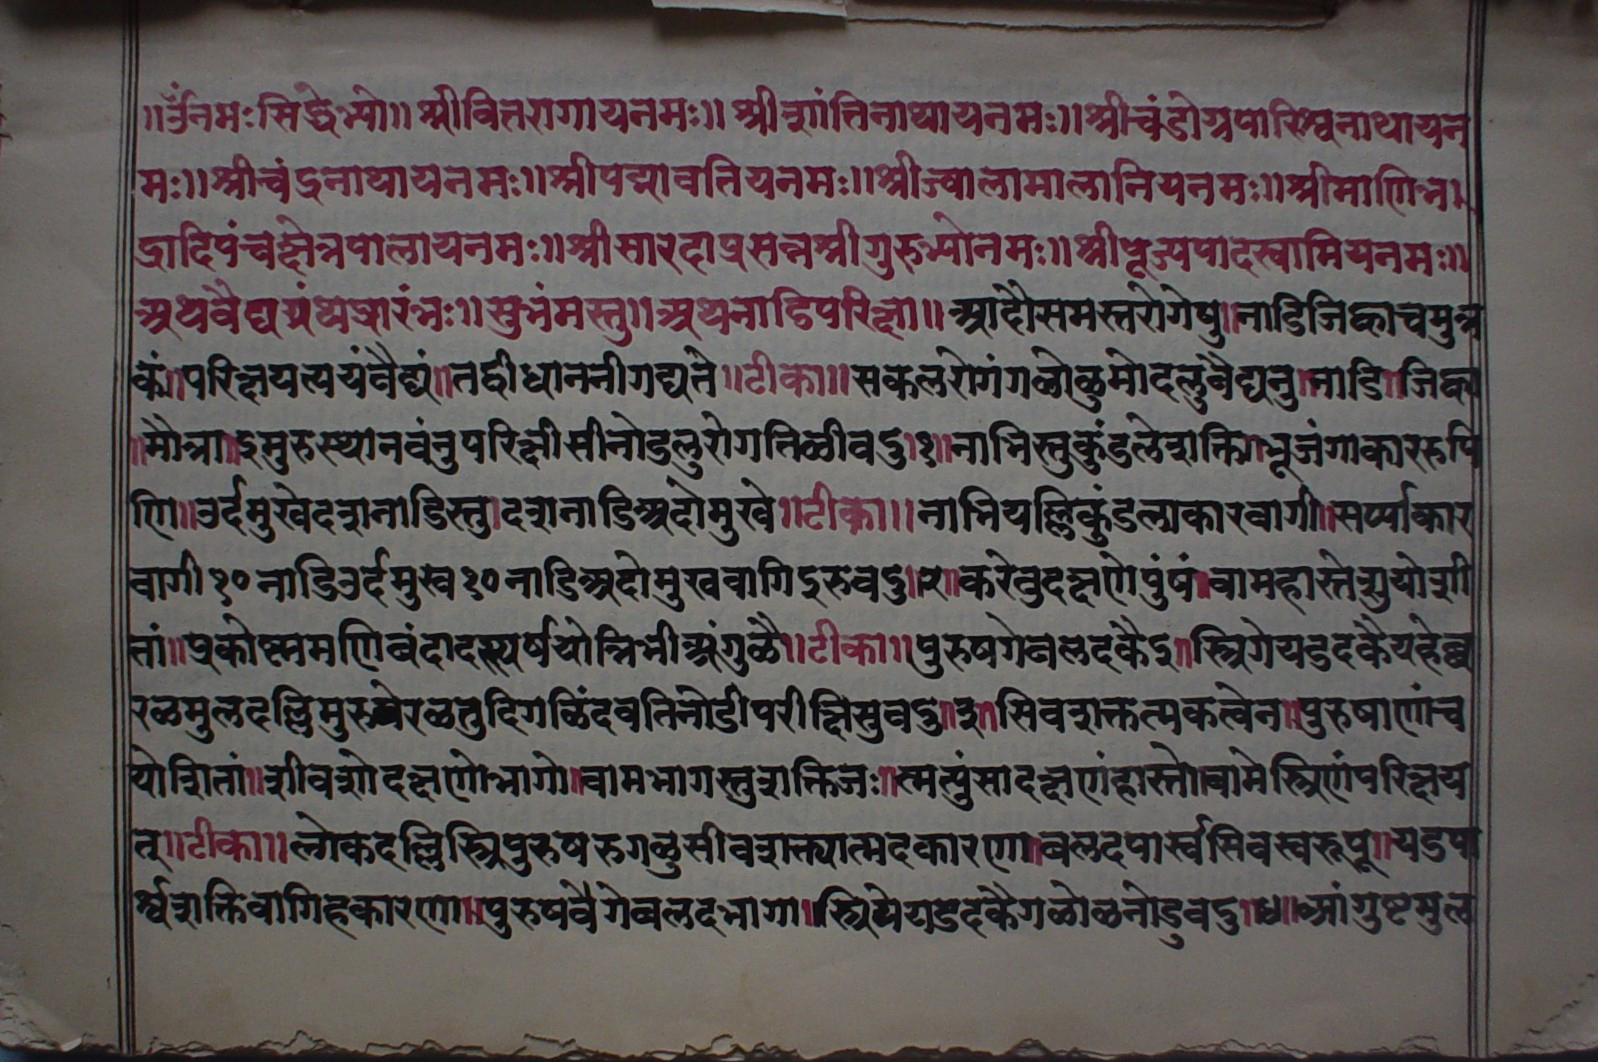 ॥ॐनमःसिद्धेभ्यो॥श्रीवितरागायनमः॥श्रीशांतिनाथायनमः॥श्रीचंडोग्रपारिश्वनाथायन
मः॥श्रीचंद्रनाथायनमः॥श्रीपद्मावतियनमः॥श्रीज्वालामालानियनमः॥श्रीमाणिभ
द्रादिपंचक्षेत्रपालायनमः॥श्रीसारदाप्रसन्नश्रीगुरुभ्योनमः॥श्रीपूज्यपादस्वामियनमः॥
अथवैद्यग्रंथप्रारंभः॥सुभंमस्तु॥अथनाडिपरिक्षा॥आदौसमस्तरोगेषु॥नाडिजिव्हाचमुत्र
कं॥परिक्षयत्ययंवैद्यं॥तद्वीधाननीगद्यते॥टीका॥सकलरोगंगळोळुमोदलुवैद्यनु॥नाडि॥जिव्हा
॥मौत्रा॥इमुरुस्थानवंनुपरिक्षीसीनोडलुरोगतिळीवदु॥१॥नाभिस्तुकुंडलेशक्ति॥भूजंगाकाररुपि
णि॥उर्दमुखेदशनाडिस्तु॥दशनाडिअदोमुखे॥टीका॥नाभियल्लिकुंडल्याकारवागी॥सर्प्पाकार
वागी१०नाडिउर्दमुख१०नाडिअदोमुखवागिइरुवदु॥२॥करेतुदक्षणेपुंषं॥वामहास्तेशुयोशी
तां॥प्रकोष्टममणिबंदादस्पर्षयोत्रिभीअंगुळै॥टीका॥पुरुषगेबलदकैइ॥स्त्रिगेयडदकैयहेब्ब
रळमुलदल्लिमुरुबेरळतुदिगळिंदवतिनोडीपरीक्षिसुवदु॥३॥सिवशक्तत्मकत्वेन॥पुरुषाणांच
योशितां॥शीवशोदक्षणोभागो॥वामभागस्तुशक्तिजः॥त्मत्पुंसादक्षणंहास्तो॥वामेस्त्रिणंपरिक्षय
त्॥टीका॥लोकदल्लिस्त्रिपुरुषरुगळुसीवशक्त्यात्मदकारणा॥बलदपार्स्वसिवस्वरूपू॥यडपा
र्श्वशक्तिवागिहकारणा॥पुरुषवैगेबलदभागा॥स्त्रियेयडदकैगळोळनोडुवदु॥४॥आंगुष्टमुल